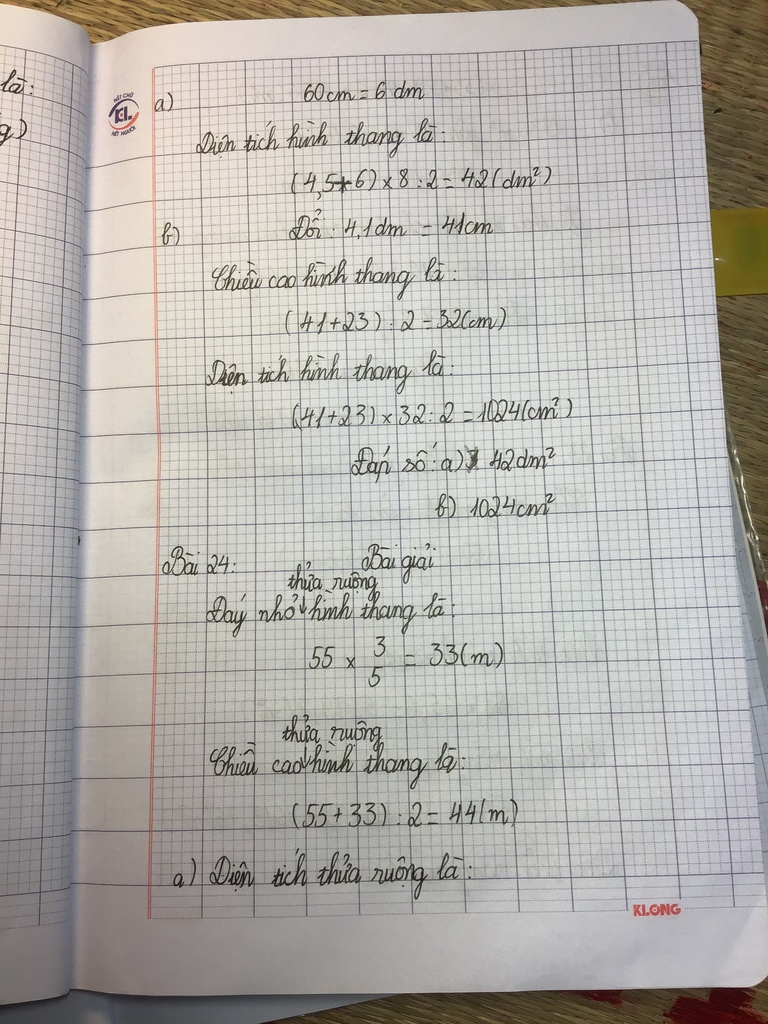 là:
g)
HẠT CHỮ
KL
NẾT NGƯỜI
a) 60cm = 6 dm
Diện tích hình thang là:
(4,5+6) × 8 : 2 = 42 (dm²)
b) Đổi: 4,1dm = 41cm
Chiều cao hình thang là:
(41+23) : 2 = 32(cm)
Diện tích hình thang là:
(41+23) × 32 : 2 = 1024(cm²)
Đáp số: a) 42dm²
b) 1024cm²
Bài 24: Bài giải
thửa ruộng
Đáy nhỏ hình thang là:
55 × 3/5 = 33(m)
thửa ruộng
Chiều cao hình thang là:
(55+33) : 2 = 44(m)
a) Diện tích thửa ruộng là:
KLONG